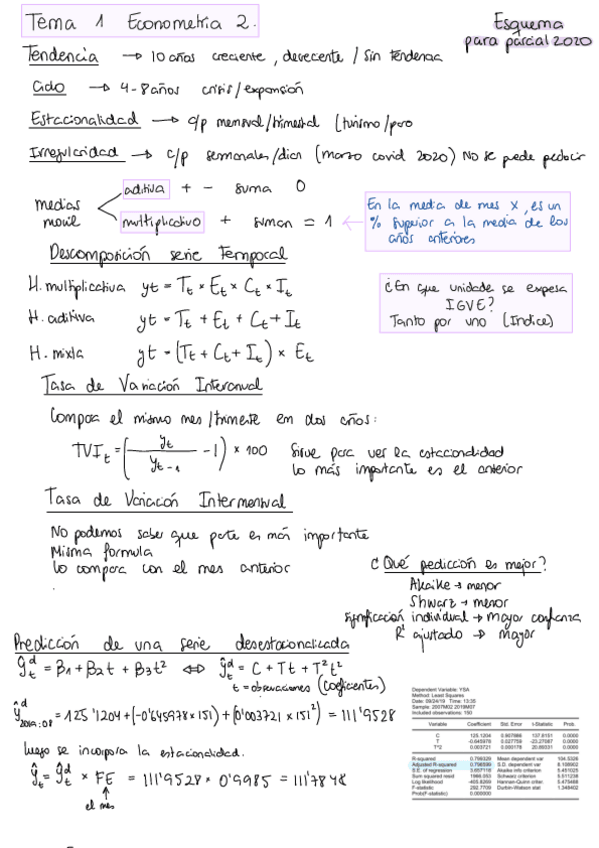 Tema 1 Econometria 2.
Esquema
para parcial 2020
Tendencia → 10 años creciente, decreciente / sin tendencia
Ciclo → 4-8 años crisis/expansión
Estacionalidad → c/p mensual/trimestral (turismo/paro
Irregularidad → c/p semanales/dias (marzo covid 2020) No se puede predecir
medias
movil
aditiva + - suma 0
multiplicativo + suman = 1
En la media de mes x, es un
% superior a la media de los
años anteriores
Descomposición serie Temporal
H. multiplicativa yt = Tt × Et × Ct × It
H. aditiva yt = Tt + Et + Ct + It
H. mixta yt = (Tt + Ct + It) × Et
¿En que unidade se expresa
IGVE?
Tanto por uno (Indice)
Tasa de Variación Interanual
Compara el mismo mes/trimestre en dos años:
TVIt = (yt / yt-1 - 1) × 100
Sirve para ver la estacionalidad
Lo más importante es el anterior
Tasa de Variación Intermensual
No podemos saber que parte es más importante
Misma formula
Lo compara con el mes anterior
¿Qué predicción es mejor?
Akaike → menor
Shwarz → menor
Significación individual → mayor confianza
R² ajustado → mayor
Predicción de una serie desestacionalizada
ŷtd = B1 + B2t + B3t² ⇔ ŷtd = C + Tt + T²t²
t = observaciones (coeficientes)
ŷd2019:08 = 125'1204 + (-0'645978 × 151) + (0'003721 × 151²) = 111'9528
luego se incorpora la estacionalidad.
ŷt = ŷtd × FE = 111'9528 × 0'9985 = 111'7848
↑
el mes
Dependent Variable: YSA
Method: Least Squares
Date: 09/24/19 Time: 13:35
Sample: 2007M02 2019M07
Included observations: 150
Variable Coefficient Std. Error t-Statistic Prob.
C 125.1204 0.0000
T -0.645978 0.0000
T^2 0.003721 0.0000
R-squared Mean dependent var
Adjusted R-squared S.D. dependent var
S.E. of regression Akaike info criterion
Sum squared resid Schwarz criterion
Log likelihood Hannan-Quinn criter.
F-statistic Durbin-Watson stat
Prob(F-statistic) 0.000000